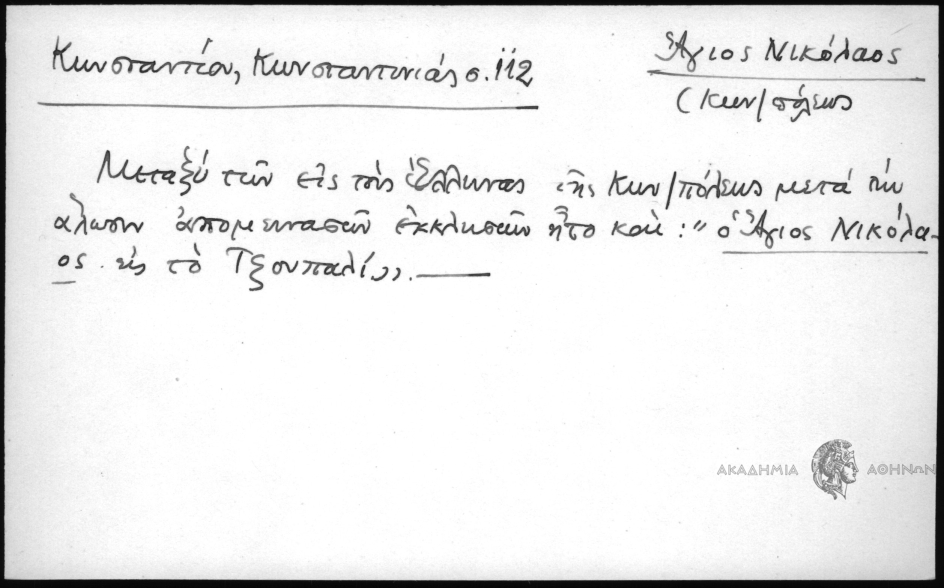 Κωνσταντίου, Κωνσταντινιάς σ. 112
Ἅγιος Νικόλαος
(Κων/πόλεως
Μεταξύ τῶν εἰς τοὺς Ἕλληνας τῆς Κων/πόλεως μετά τήν
ἅλωσιν ἀπομεινασῶν ἐκκλησιῶν ἦτο καὶ: " ὁ Ἅγιος Νικόλα-
ος εἰς τὸ Τζουπαλί,,.
ΑΚΑΔΗΜΙΑ ΑΘΗΝΩΝ